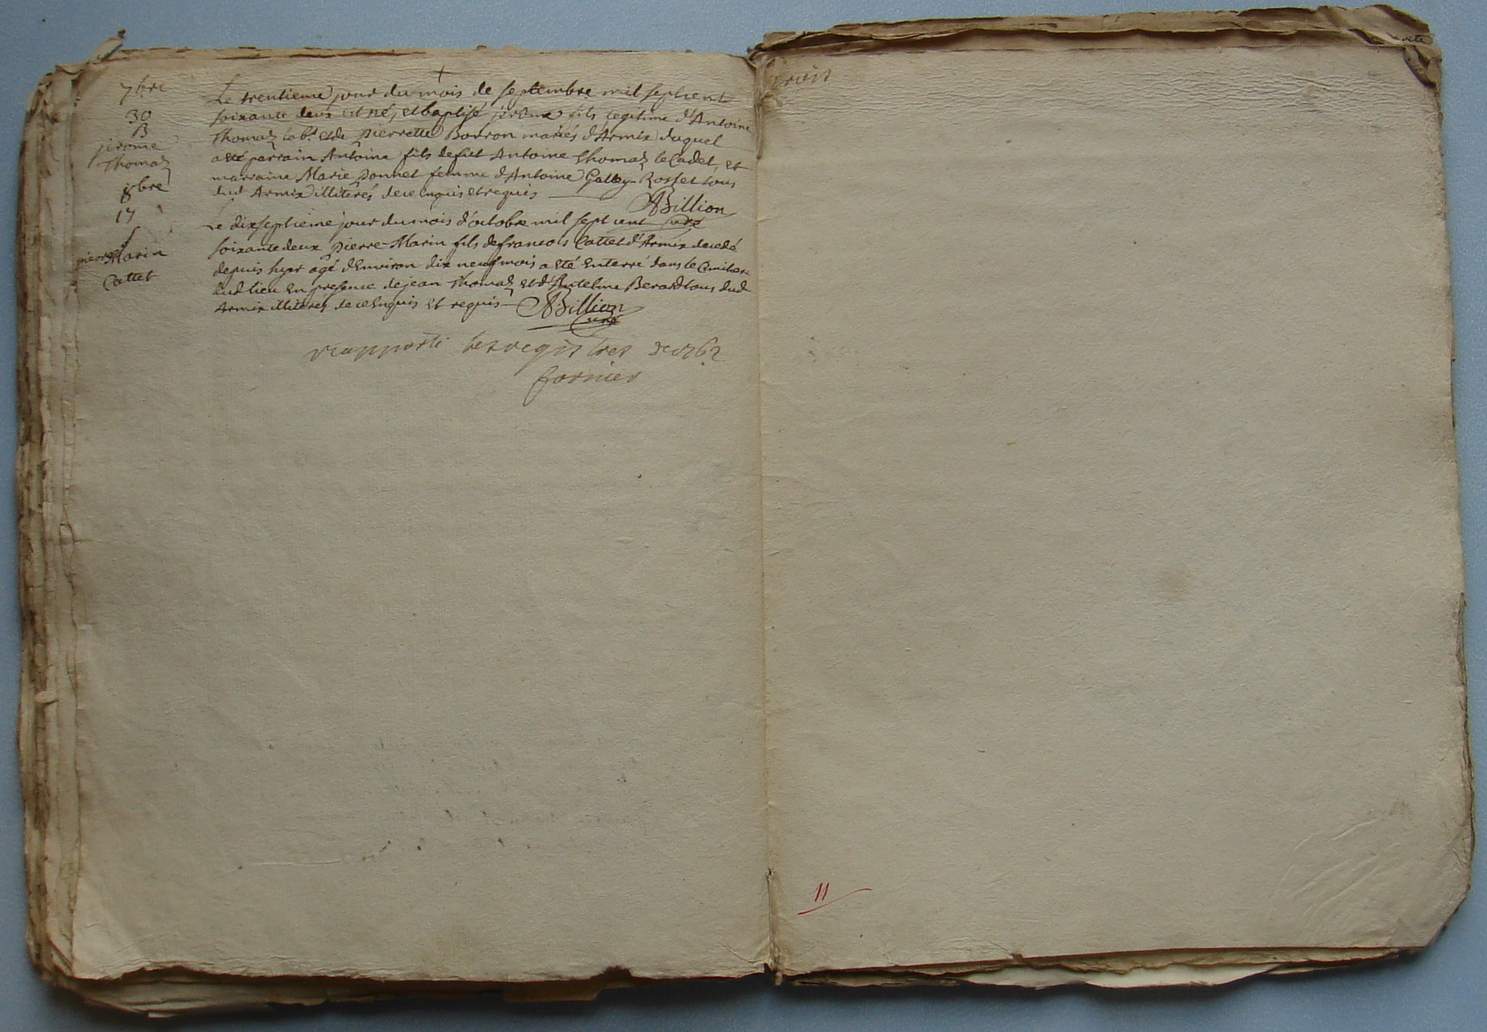 7bre
30
B
jérome
Thomaz
Le trentieme jour du mois de septembre mil septcent
soixante deux est né, et baptisé jérome fils legitime d'Antoine
Thomaz et de pierrette Borron mariés d'Armix duquel
a eté parrain Antoine fils de fut Antoine Thomaz le Cadet, et
marraine Marie Donnet femme d'Antoine Rosset tous
dud Armix illiterés de ce enquis et requis
ABillion
curé
8bre
17
pierre Marin
Cattet
Le dixseptieme jour du mois d'octobre mil sept cent
soixante deux pierre-Marin fils de francois Cattet d'Armix decedé
depuis hyer agé d'environ dix neuf mois a eté enterré dans le Cimitiere
dud lieu en presence de jean Thomaz et d'Anteleme Berard tous dud
Armix illiteres de ce enquis et requis
ABillion
curé
raapporté les registres de 1762
fornier
trois
11